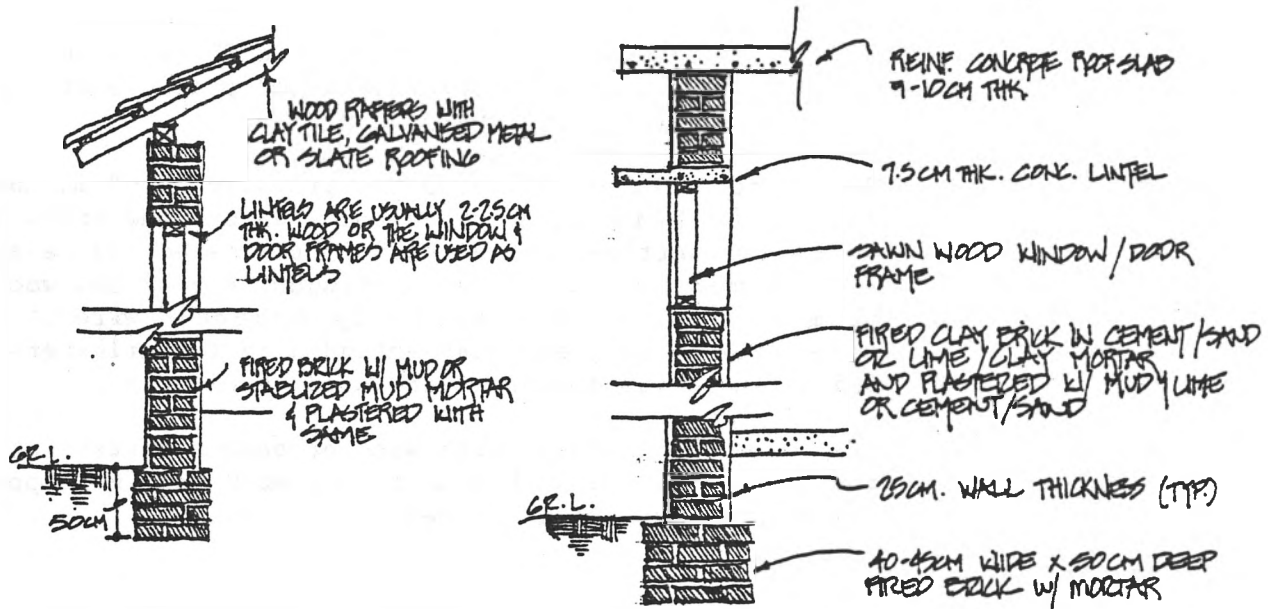 WOOD RAFTERS WITH
CLAY TILE, GALVANISED METAL
OR SLATE ROOFING
LINTELS ARE USUALLY 2-2.5CM
THK. WOOD OR THE WINDOW &
DOOR FRAMES ARE USED AS
LINTELS
FIRED BRICK W/ MUD OR
STABLIZED MUD MORTAR
& PLASTERED WITH
SAME
GR.L.
50CM
REINF. CONCRETE ROOF SLAB
9-10CM THK.
7.5CM THK. CONC. LINTEL
SAWN WOOD WINDOW/DOOR
FRAME
FIRED CLAY BRICK IN CEMENT/SAND
OR LIME/CLAY MORTAR
AND PLASTERED W/ MUD & LIME
OR CEMENT/SAND
25CM. WALL THICKNESS (TYP.)
GR.L.
40-45CM WIDE X 50CM DEEP
FIRED BRICK W/ MORTAR